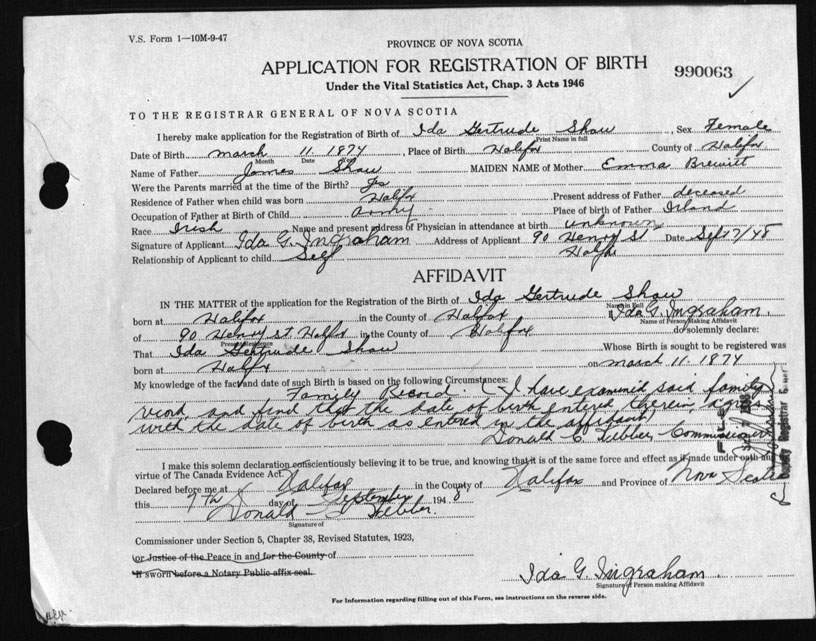 V.S. Form 1—10M-9-47
PROVINCE OF NOVA SCOTIA
APPLICATION FOR REGISTRATION OF BIRTH
990063
Under the Vital Statistics Act, Chap. 3 Acts 1946
TO THE REGISTRAR GENERAL OF NOVA SCOTIA
I hereby make application for the Registration of Birth of Ida Gertrude Shaw, Sex Female
Print Name in full
Date of Birth March 11 1874, Place of Birth Halifax County of Halifax
Month Date Year
Name of Father James Shaw MAIDEN NAME of Mother Emma Brewitt
Were the Parents married at the time of the Birth? Yes
Residence of Father when child was born Halfx Present address of Father deceased
Occupation of Father at Birth of Child Army Place of birth of Father Irland
Race Irish Name and present address of Physician in attendance at birth unknown
Signature of Applicant Ida G. Ingraham Address of Applicant 90 Henry St Date Sept 7/48
Relationship of Applicant to child Self Halfx
AFFIDAVIT
IN THE MATTER of the application for the Registration of the Birth of Ida Gertrude Shaw
Name in Full
born at Halifax in the County of Halifax Ida G. Ingraham
Name of Person Making Affidavit
of 90 Henry St. Halfax in the County of Halifax do solemnly declare:
Present Residence
That Ida Gertrude Shaw Whose Birth is sought to be registered was
born at Halfx on March 11. 1874
My knowledge of the fact and date of such Birth is based on the following Circumstances:
Family Record. I have examined said family
record and find that the date of birth entered therein, agrees
with the date of birth as entered in the affidavit
Donald C. Webber Commissioner
I make this solemn declaration conscientiously believing it to be true, and knowing that it is of the same force and effect as if made under oath and
virtue of The Canada Evidence Act.
Declared before me at Halifax in the County of Halifax and Province of Nova Scotia
this 7th day of September 1948
Donald C Webber
Signature of
Commissioner under Section 5, Chapter 38, Revised Statutes, 1923,
(or Justice of the Peace in and for the County of
If sworn before a Notary Public affix seal.
Ida G. Ingraham
Signature of Person making Affidavit
For Information regarding filling out of this Form, see instructions on the reverse side.
FILED
Deputy Registrar General